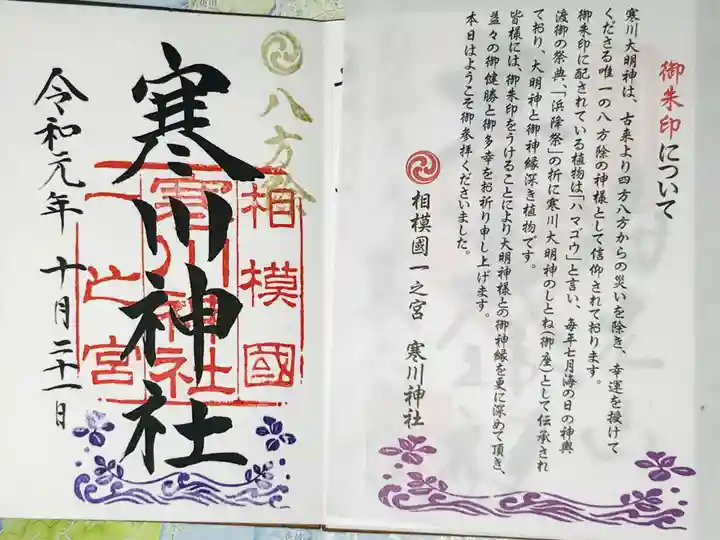 御朱印について
寒川大明神は、古来より四方八方からの災いを除き、幸運を授けて
くださる唯一の八方除の神様として信仰されております。
御朱印に配されている植物は「ハマゴウ」と言い、毎年七月海の日の神輿
渡御の祭典、「浜降祭」の折に寒川大明神のしとね(御座)として伝承され
ており、大明神と御神縁深き植物です。
皆様には、御朱印をうけることにより大明神様との御神縁を更に深めて頂き、
益々の御健勝と御多幸をお祈り申し上げます。
本日はようこそ御参拝くださいました。
相模國一之宮 寒川神社
八方除
寒川神社
相模國
寒川神社
一之宮
令和元年 十月二十一日